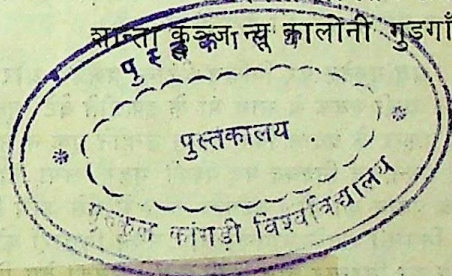 शान्ता कुञ्ज न्यू कालोनी गुडगाँ
पुस्तकालय
गुरुकुल कांगड़ी विश्वविद्यालय